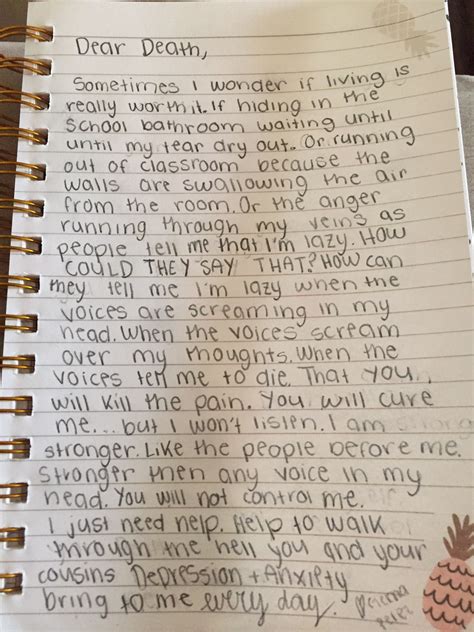 Dear Death,
Sometimes I wonder if living is
really worth it. If hiding in the
school bathroom waiting until
until my tear dry out. Or running
out of classroom because the
walls are swallowing the air
from the room. Or the anger
running through my veins as
people tell me that I'm lazy. How
COULD THEY SAY THAT? HOW can
they tell me I'm lazy when the
voices are screaming in my
head. When the voices scream
over my thoughts. When the
voices tell me to die. That you
will kill the pain. You will cure
me... but I won't listen. I am
stronger. Like the people before me.
Stronger then any voice in my
head. You will not control me.
I just need help. Help to walk
through the hell you and your
cousins Depression + Anxiety
bring to me every day.